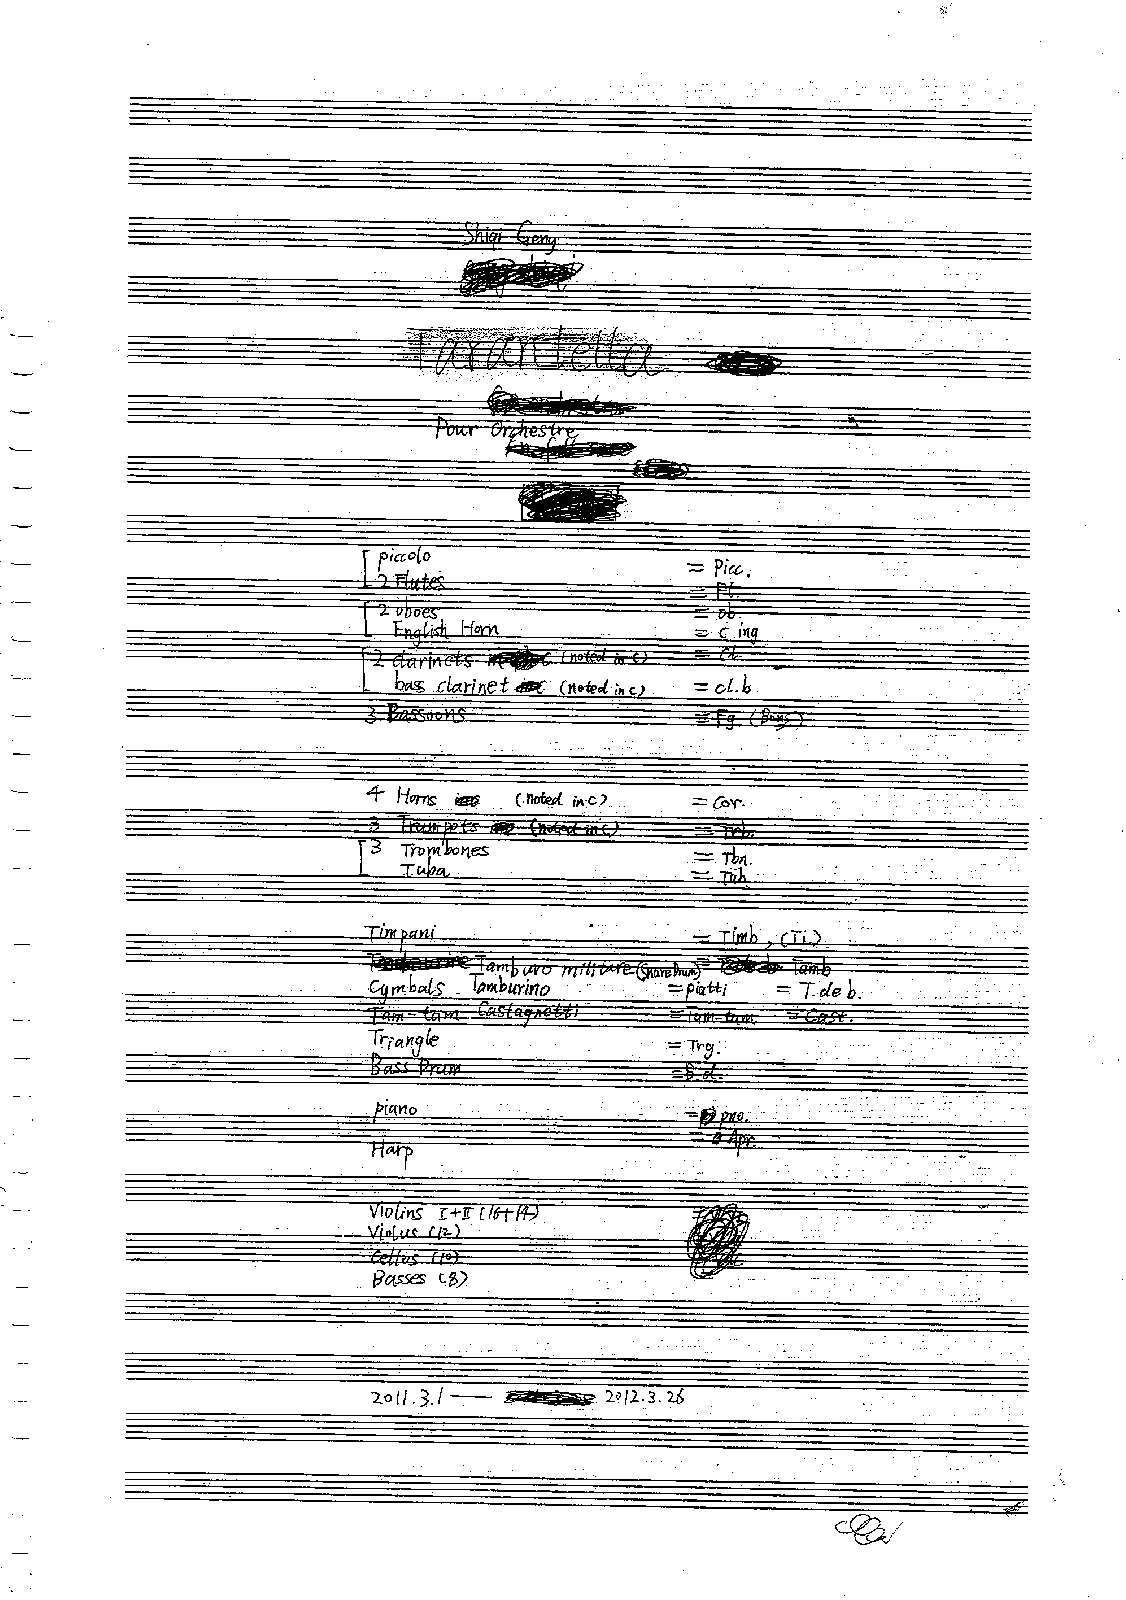 Shiqi Geng
Tarantella
Pour Orchestre
piccolo = Picc.
2 Flutes = Fl.
2 oboes = ob.
English Horn = C ing
2 clarinets (noted in c) = cl.
bass clarinet (noted in c) = cl.b
3 Bassoons = Fg.
4 Horns (noted in c) = Cor.
3 Trumpets (noted in c) = Trb.
3 Trombones = Tbn.
Tuba = Tub.
Timpani = Timb, (Ti.)
Tamburo militare (Snare Drum) = Tamb
Cymbals Tamburino = piatti = T. de b.
Tam-tam Castagnetti = Tam-tam = Cast.
Triangle = Trg.
Bass Drum = B.d.
piano = pno.
Harp = Apr.
Violins I+II (16+14)
Violus (12)
Cellos (10)
Basses (8)
2011.3.1 — 2012.3.26